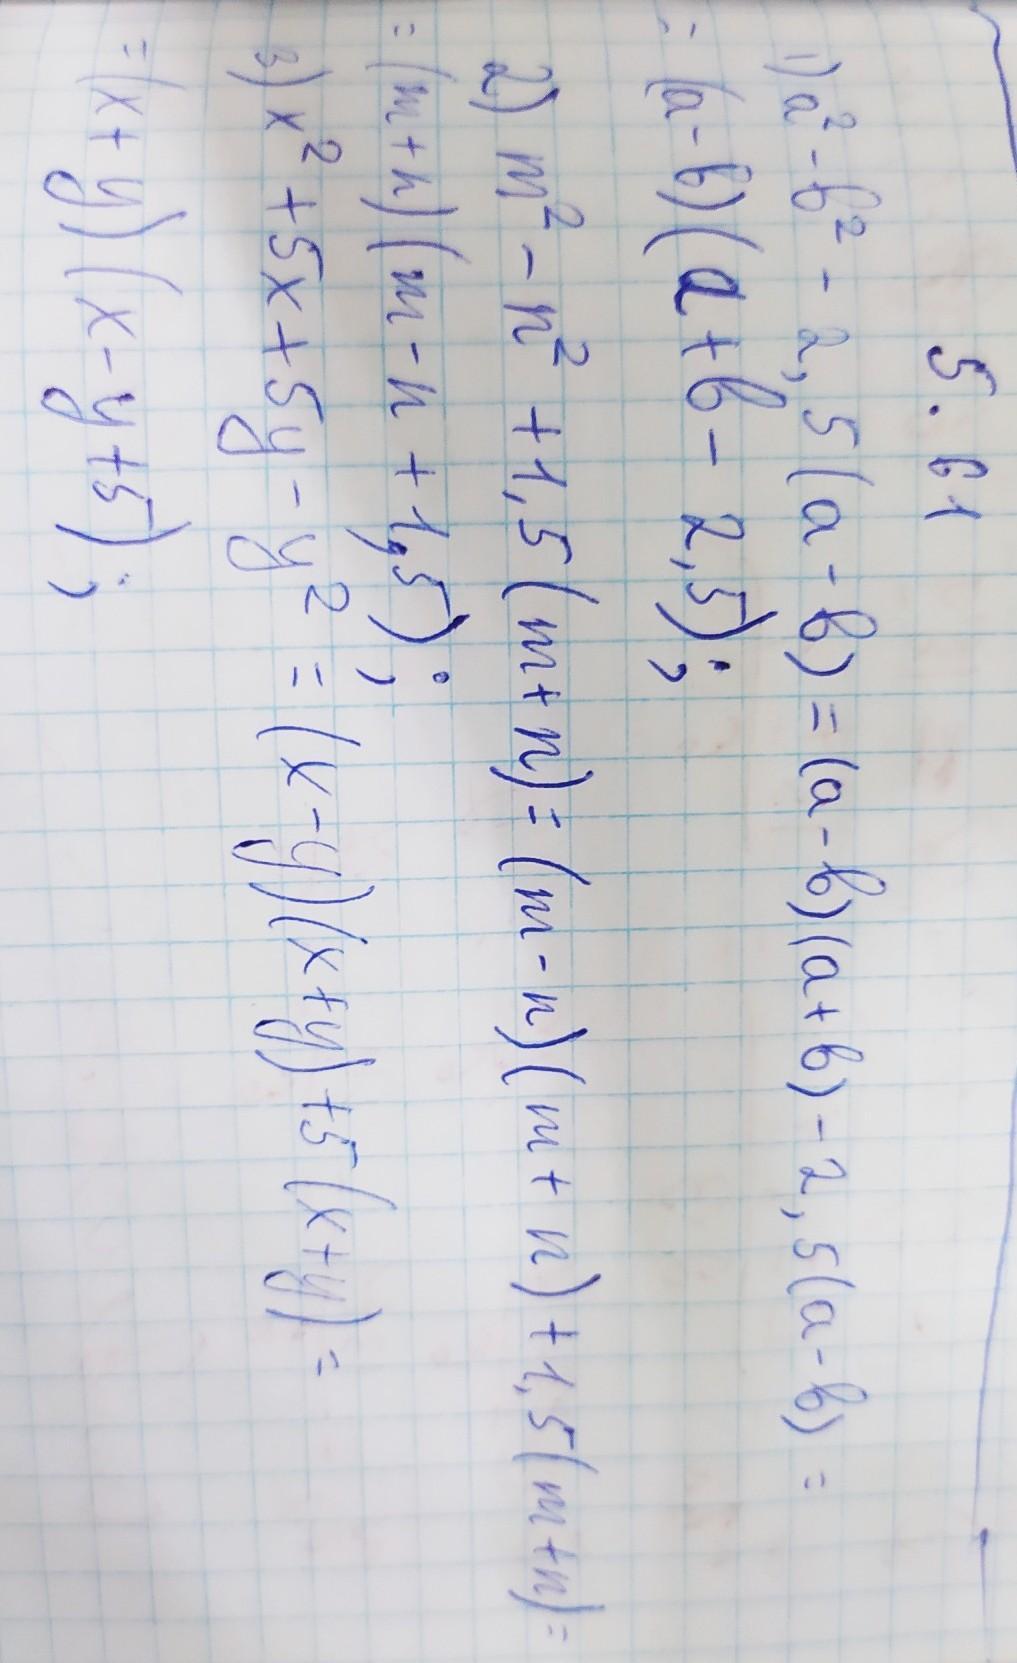 5.61
1) a² - b² - 2,5(a - b) = (a - b)(a + b) - 2,5(a - b) =
= (a - b)(a + b - 2,5);
2) m² - n² + 1,5(m + n) = (m - n)(m + n) + 1,5(m + n) =
= (m + n)(m - n + 1,5);
3) x² + 5x + 5y - y² = (x - y)(x + y) + 5(x + y) =
= (x + y)(x - y + 5);